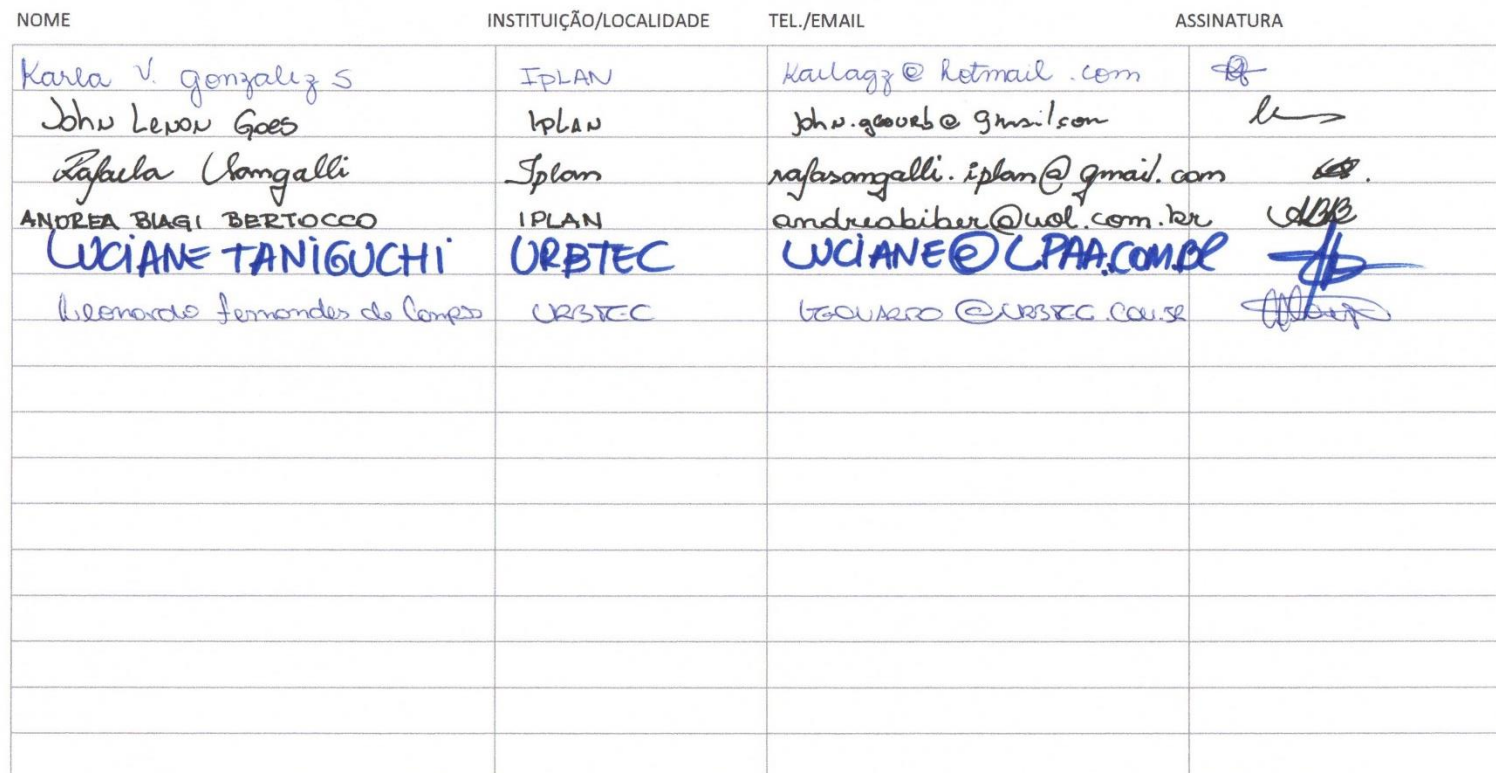 NOME INSTITUIÇÃO/LOCALIDADE TEL./EMAIL ASSINATURA
Karla V. Gonzalez S IPLAN Karlagz@hotmail.com
John Lenon Goes IPLAN john.geourb@gmail.com
Rafaela Sangalli Iplan rafasangalli.iplan@gmail.com
ANDREA BIAGI BERTOCCO IPLAN andreabiber@uol.com.br ABB
LUCIANE TANIGUCHI URBTEC LUCIANE@LPAA.COM.BR
Leonardo Fernandes de Campos URBTEC LEONARDO@URBTEC.COM.BR